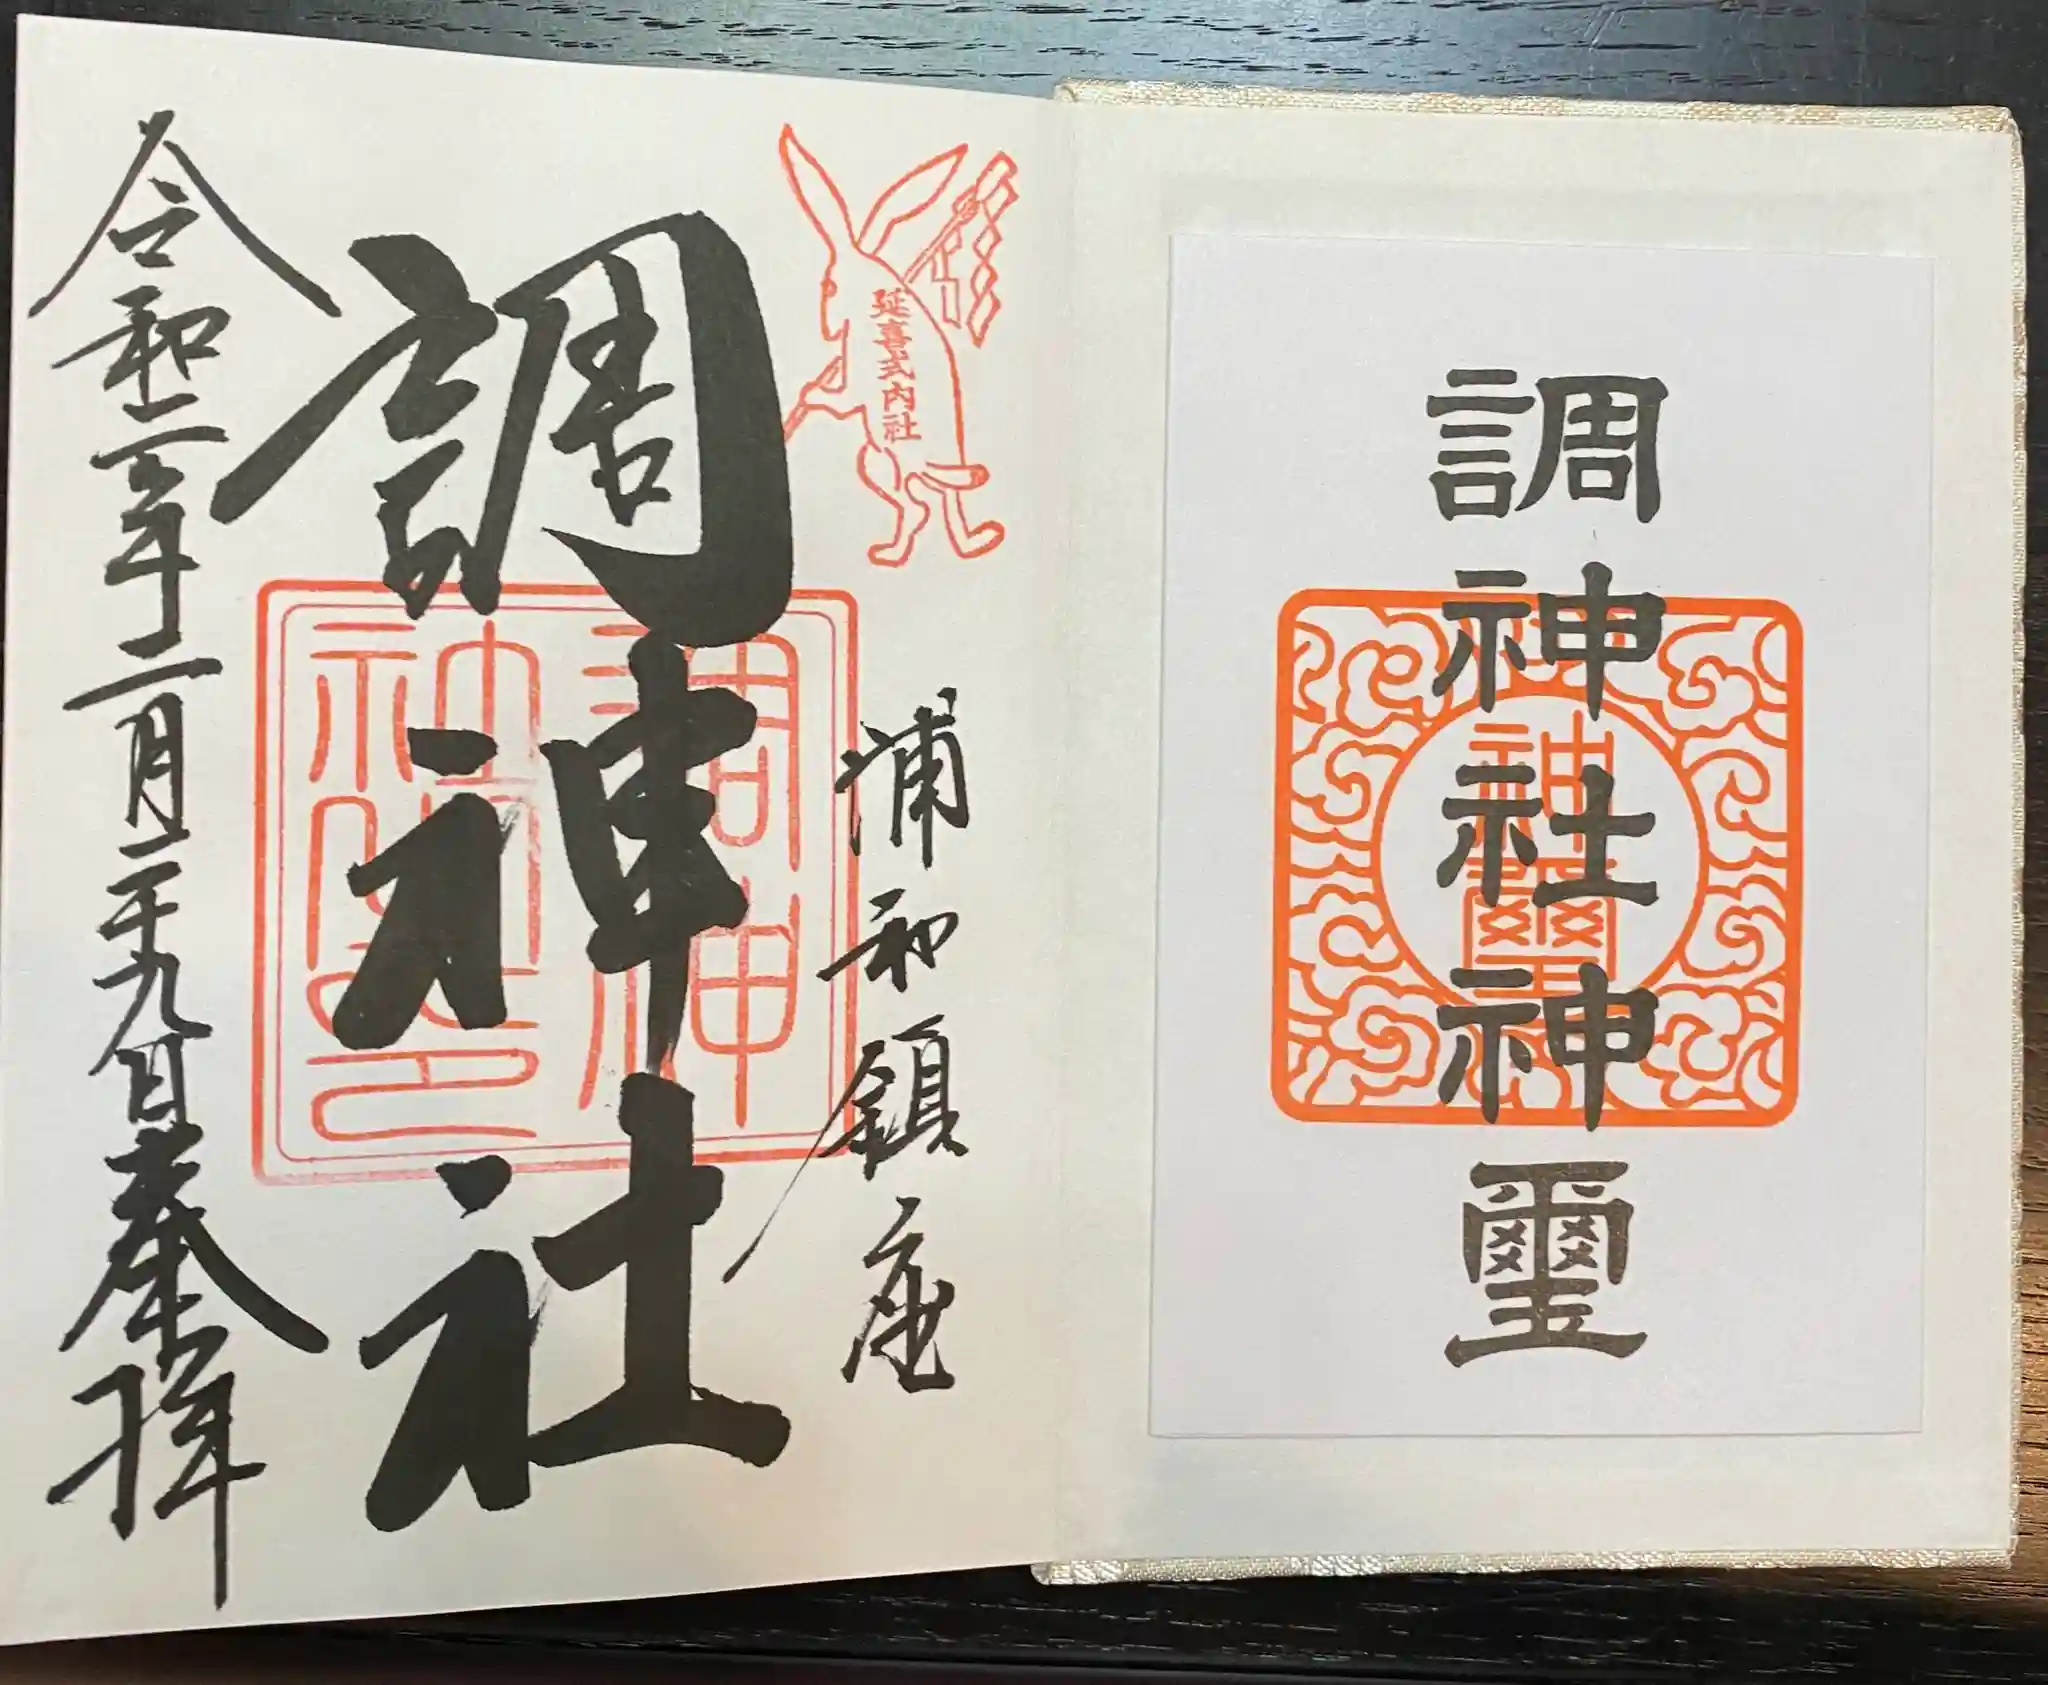 調神社神璽
神璽
延喜式内社
浦和鎮座
調神社
調神
令和二年二月二十九日奉拝